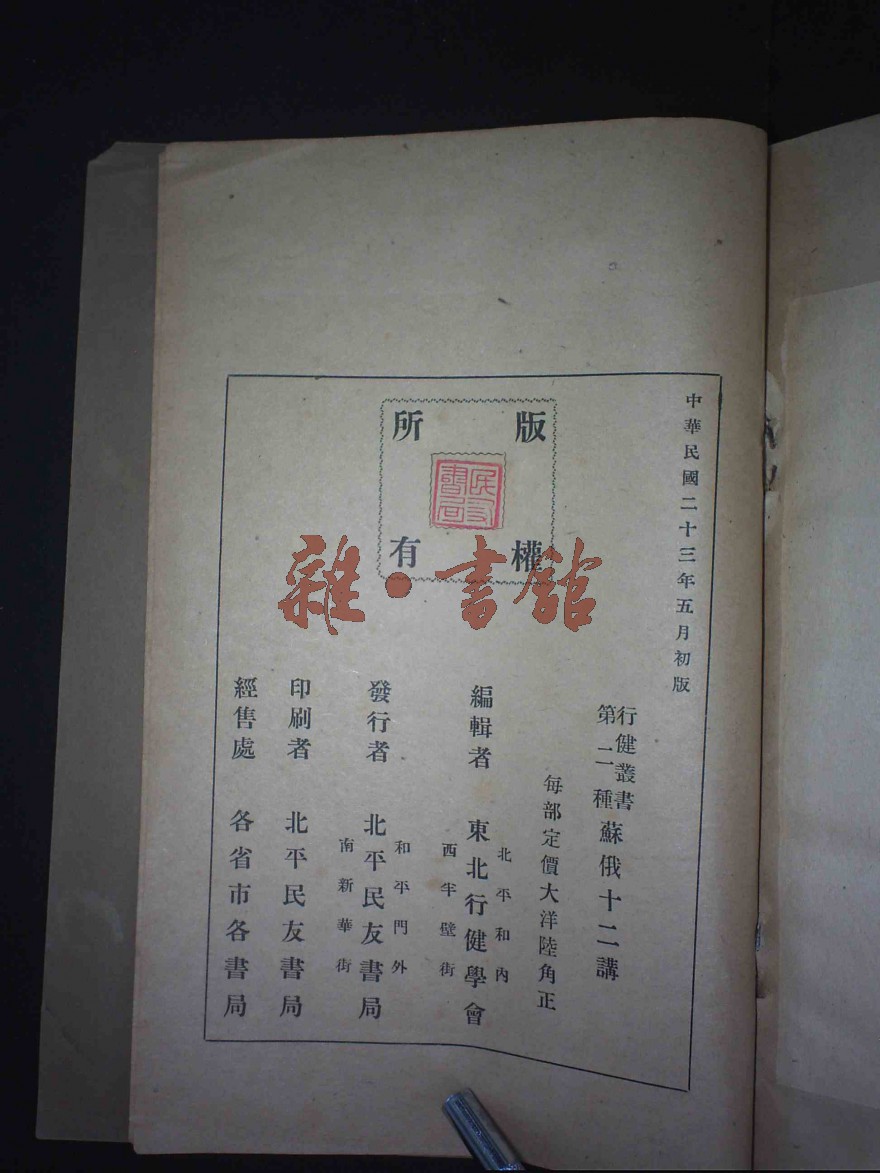 中華民國二十三年五月初版
版權所有
民友書局
行健叢書
第二種
蘇俄十二講
每部定價大洋陸角正
編輯者
北平和內
東北行健學會
西半壁街
發行者
和平門外
北平民友書局
南新華街
印刷者 北平民友書局
經售處 各省市各書局
雜·書館